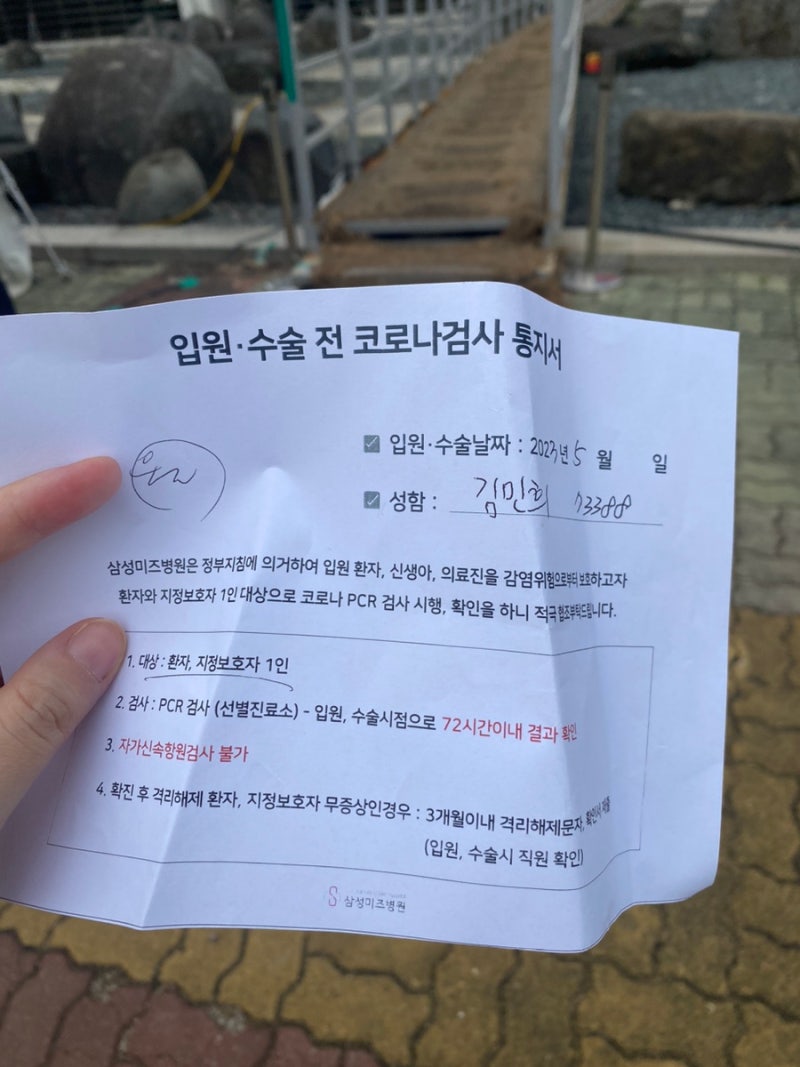 입원·수술 전 코로나검사 통지서
입원·수술날짜 : 2023년 5월 일
성함 : 김민희 73388
삼성미즈병원은 정부지침에 의거하여 입원 환자, 신생아, 의료진을 감염위험으로부터 보호하고자
환자와 지정보호자 1인 대상으로 코로나 PCR 검사 시행, 확인을 하니 적극 협조부탁드립니다.
1. 대상 : 환자, 지정보호자 1인
2. 검사 : PCR 검사 (선별진료소) - 입원, 수술시점으로 72시간이내 결과 확인
3. 자가신속항원검사 불가
4. 확진 후 격리해제 환자, 지정보호자 무증상인경우 : 3개월이내 격리해제문자, 확인서 제출
(입원, 수술시 직원 확인)
삼성미즈병원